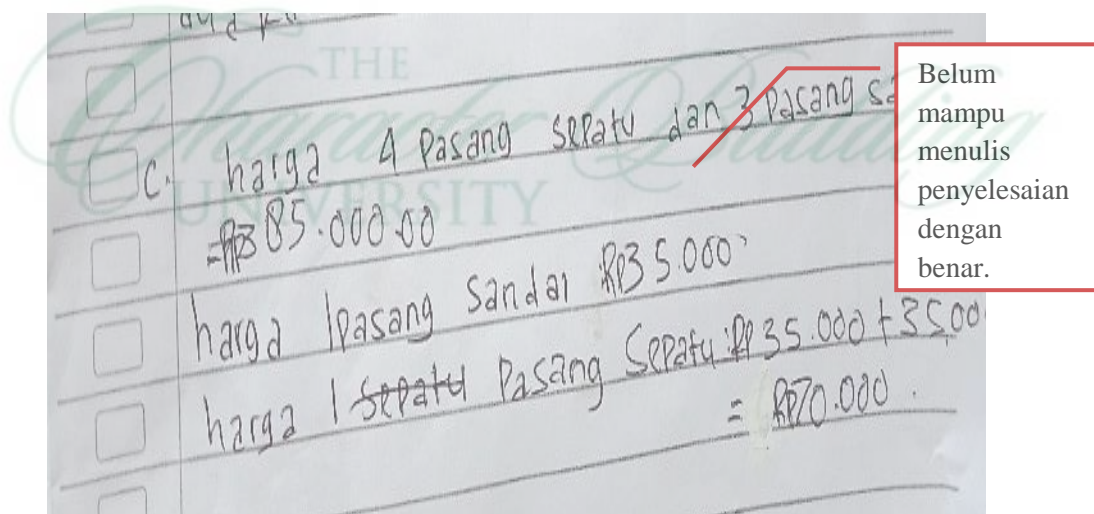 THE
Character Building
UNIVERSITY
C. harga 4 Pasang sepatu dan 3 Pasang
=Rp385.000.00
harga 1 pasang Sandal Rp35.000
harga 1 sepatu Pasang Sepatu: Rp 35.000 + 35.00
= Rp70.000.
Belum
mampu
menulis
penyelesaian
dengan
benar.